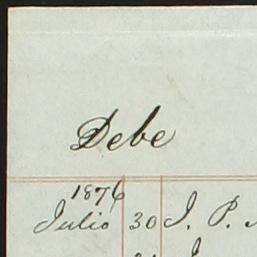 Debe
1876
Julio 30 J. P.